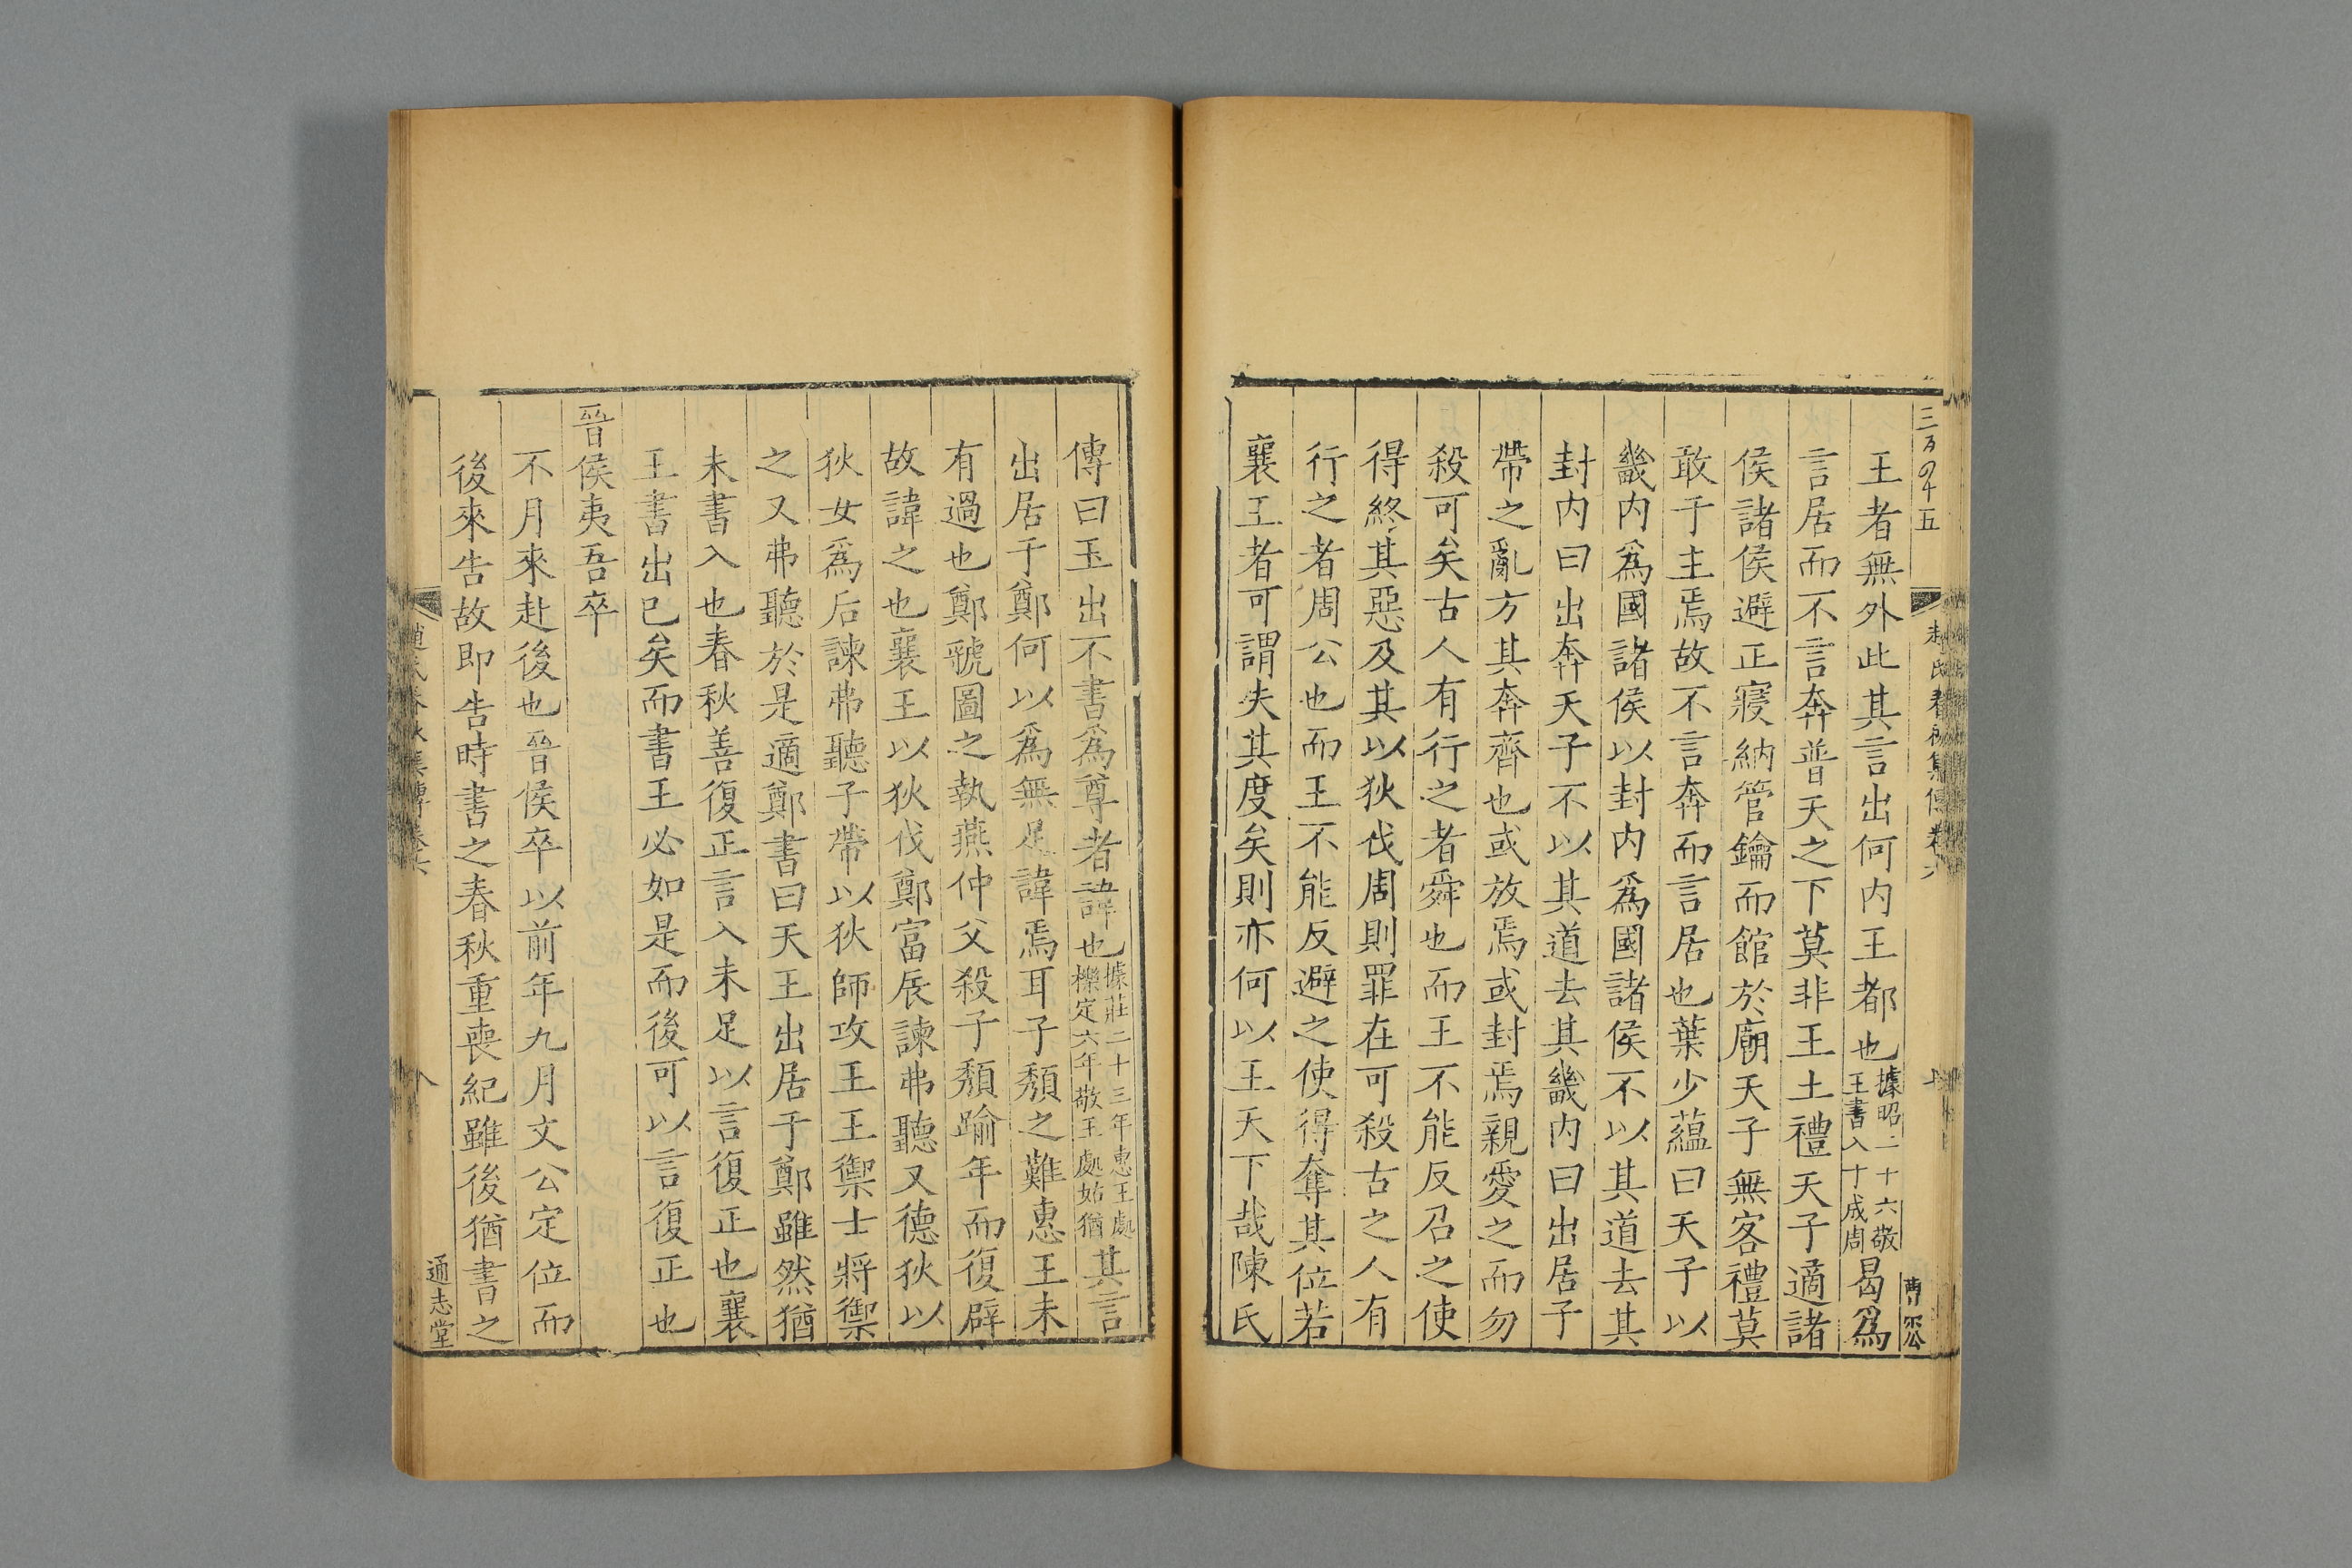 三百四十五
王者無外此其言出何内王都也據昭二十六敬王書入十成周曷爲
言居而不言奔普天之下莫非王土禮天子適諸
侯諸侯避正寢納管鑰而館於廟天子無客禮莫
敢于主焉故不言奔而言居也葉少藴曰天子以
畿内爲國諸侯以封内爲國諸侯不以其道去其
封内曰出奔天子不以其道去其畿内曰出居子
帶之亂方其奔齊也或放焉或封焉親愛之而勿
殺可矣古人有行之者舜也而王不能反召之使
得終其惡及其以狄伐周則罪在可殺古之人有
行之者周公也而王不能反避之使得奪其位若
襄王者可謂失其度矣則亦何以王天下哉陳氏
傳曰王出不書爲尊者諱也據莊二十三年惠王處櫟定六年敬王處姑猶其言
出居于鄭何以爲無足諱焉耳子頹之難惠王未
有過也鄭虢圖之執燕仲父殺子頹踰年而復辟
故諱之也襄王以狄伐鄭富辰諫弗聽又德狄以
狄女爲后諫弗聽子帶以狄師攻王王禦士將禦
之又弗聽於是適鄭書曰天王出居于鄭雖然猶
未書入也春秋善復正言入未足以言復正也襄
王書出已矣而書王必如是而後可以言復正也
晉侯夷吾卒
不月來赴後也晉侯卒以前年九月文公定位而
後來告故即告時書之春秋重喪紀雖後猶書之
趙氏春秋集傳卷六
八
通志堂